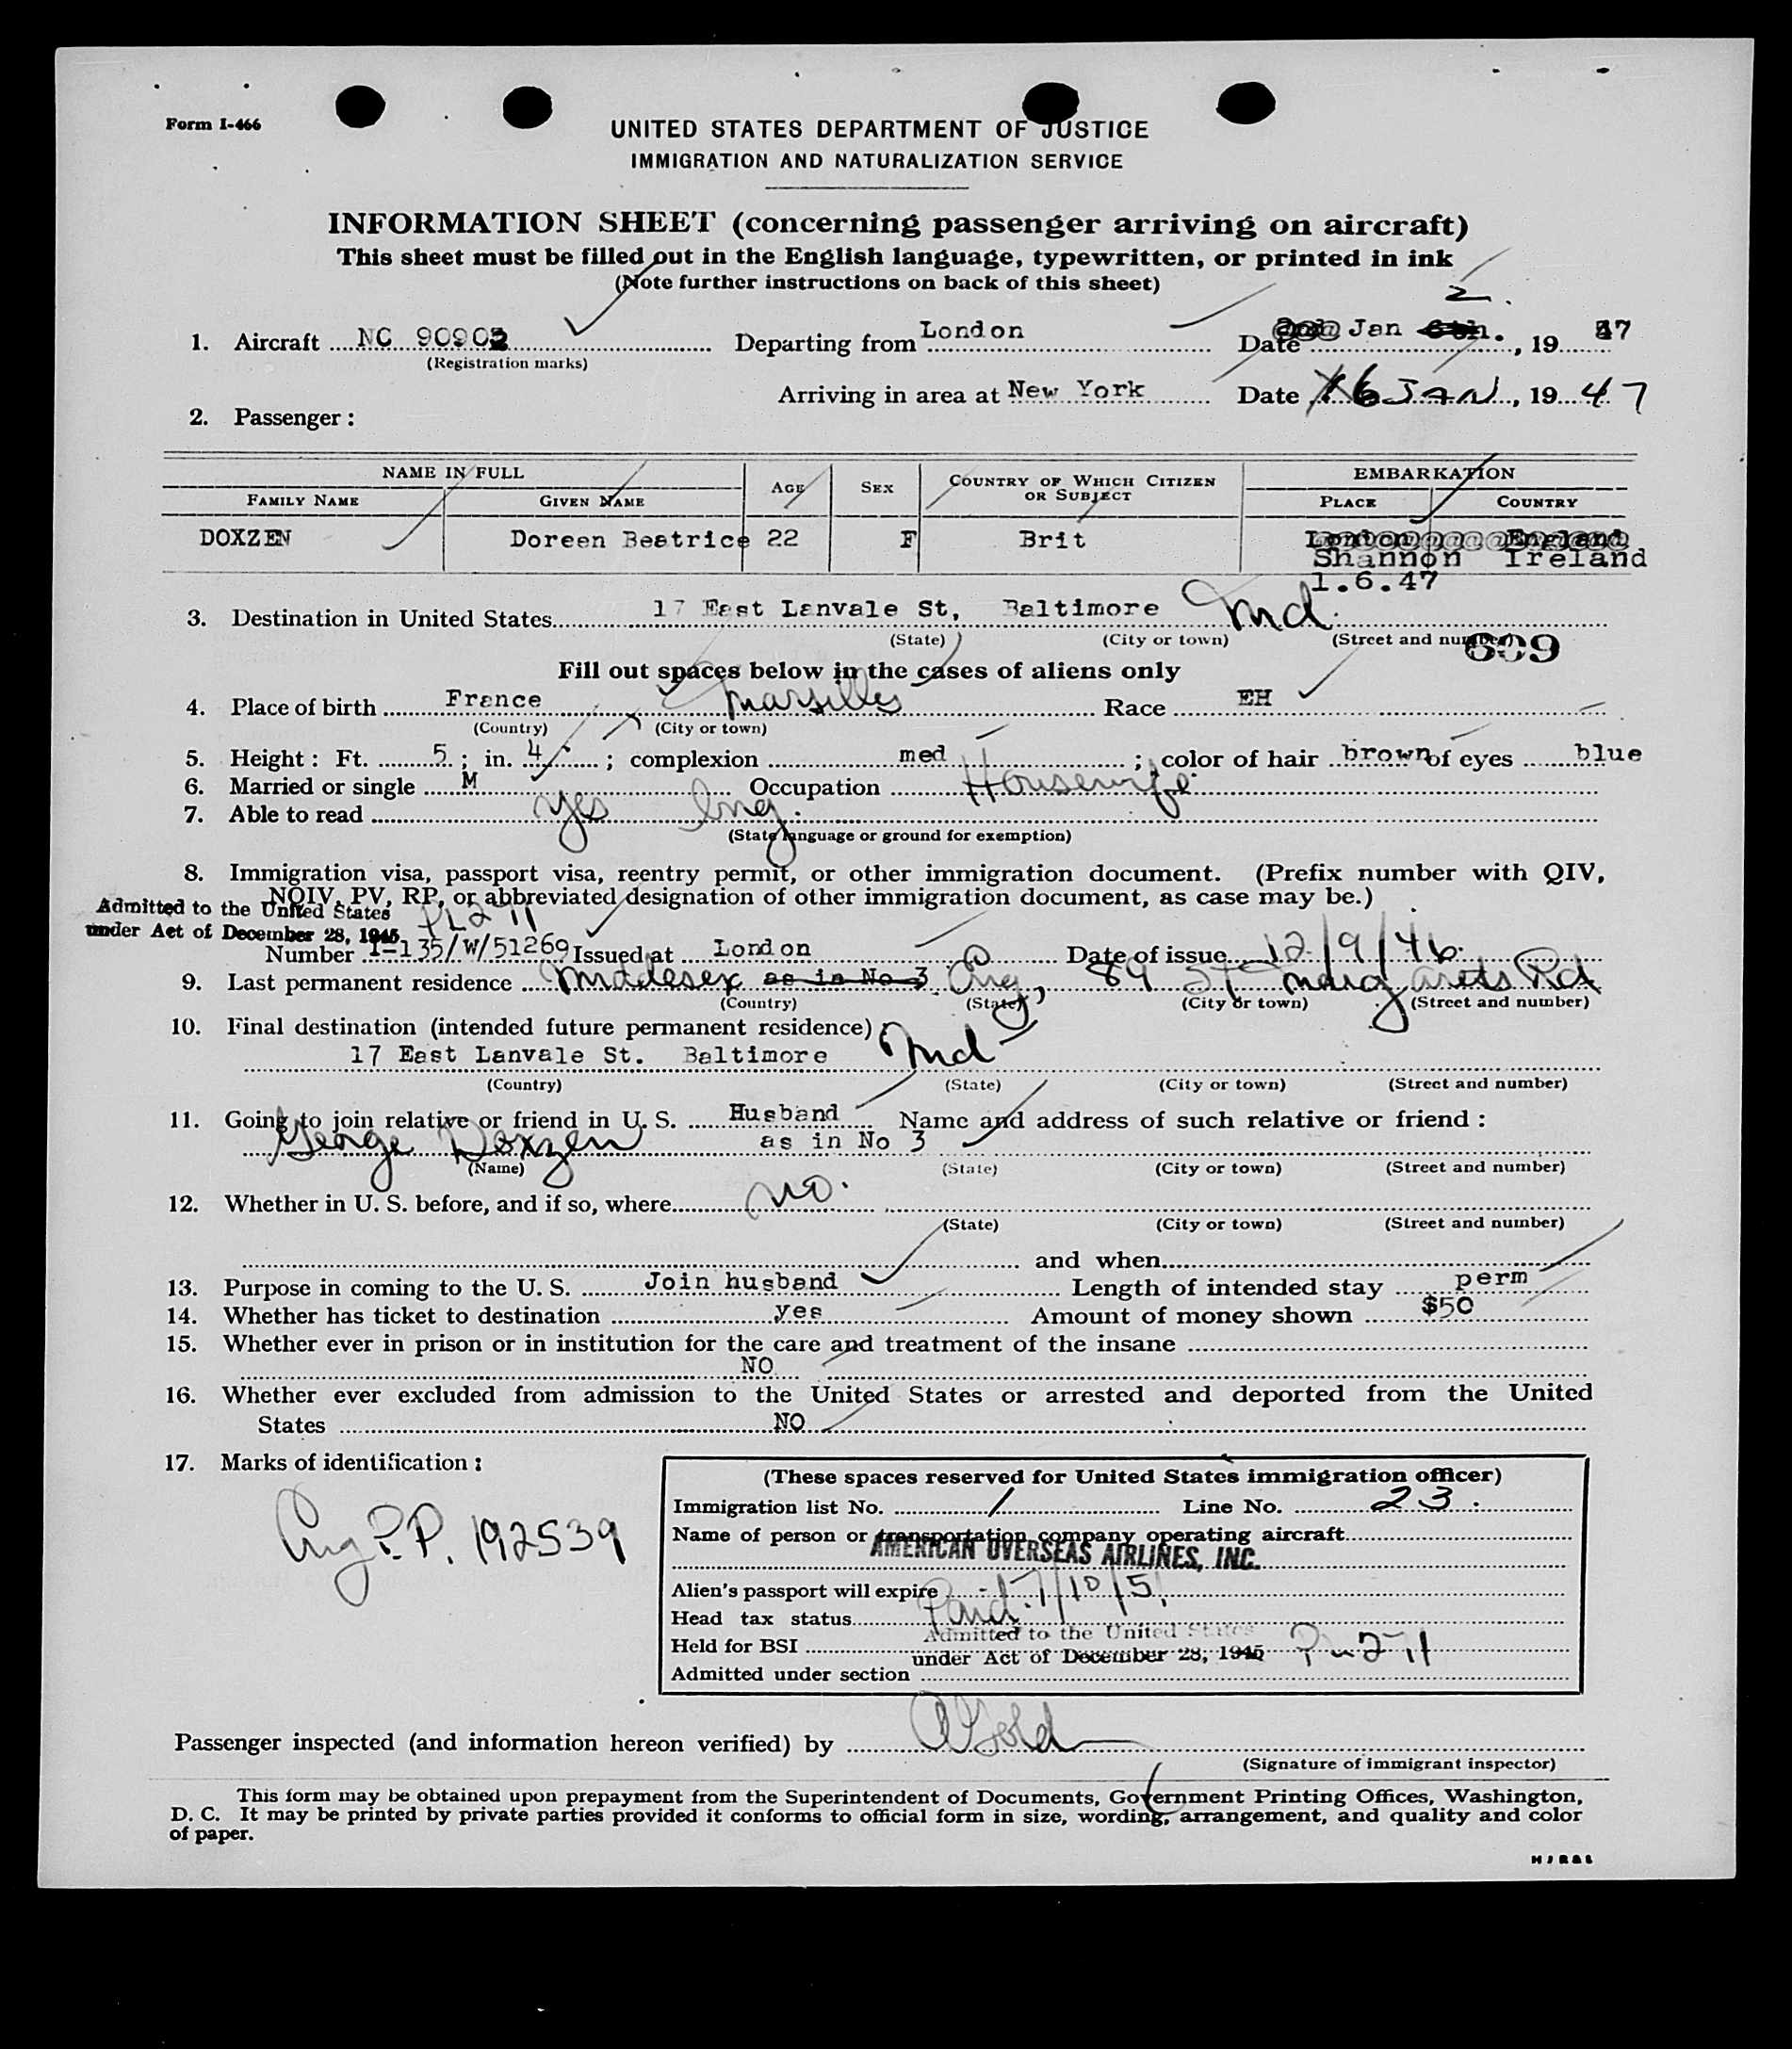 Form I-466
UNITED STATES DEPARTMENT OF JUSTICE
IMMIGRATION AND NATURALIZATION SERVICE
INFORMATION SHEET (concerning passenger arriving on aircraft)
This sheet must be filled out in the English language, typewritten, or printed in ink
(Note further instructions on back of this sheet)
2.
1. Aircraft NC 90902 Departing from London Date Jan , 19 47
(Registration marks)
Arriving in area at New York Date 6 JAN, 19 47
2. Passenger:
NAME IN FULL AGE SEX COUNTRY OF WHICH CITIZEN OR SUBJECT EMBARKATION
FAMILY NAME GIVEN NAME PLACE COUNTRY
DOXZEN Doreen Beatrice 22 F Brit London England
Shannon Ireland
1.6.47
3. Destination in United States 17 East Lanvale St, Baltimore Md.
(State) (City or town) (Street and number)
609
Fill out spaces below in the cases of aliens only
4. Place of birth France Marsilles Race EH
(Country) (City or town)
5. Height: Ft. 5; in. 4; complexion med; color of hair brown of eyes blue
6. Married or single M Occupation Housewife
7. Able to read yes Eng.
(State language or ground for exemption)
8. Immigration visa, passport visa, reentry permit, or other immigration document. (Prefix number with QIV,
NQIV, PV, RP, or abbreviated designation of other immigration document, as case may be.)
Admitted to the United States
under Act of December 28, 1945 PL 271
Number I-135/W/51269 Issued at London Date of issue 12/9/46.
9. Last permanent residence Middlesex as in No 3 Eng, 89 St Margarets Rd
(Country) (State) (City or town) (Street and number)
10. Final destination (intended future permanent residence):
17 East Lanvale St. Baltimore Md
(Country) (State) (City or town) (Street and number)
11. Going to join relative or friend in U. S. Husband Name and address of such relative or friend:
George Doxzen as in No 3
(Name) (State) (City or town) (Street and number)
12. Whether in U. S. before, and if so, where no.
(State) (City or town) (Street and number)
and when
13. Purpose in coming to the U. S. Join husband Length of intended stay perm
14. Whether has ticket to destination yes Amount of money shown $50
15. Whether ever in prison or in institution for the care and treatment of the insane
NO
16. Whether ever excluded from admission to the United States or arrested and deported from the United
States NO
17. Marks of identification:
Eng P.P. 192539
(These spaces reserved for United States immigration officer)
Immigration list No. 1 Line No. 23.
Name of person or transportation company operating aircraft
AMERICAN OVERSEAS AIRLINES, INC.
Alien's passport will expire
Head tax status
Admitted to the United States
Held for BSI
under Act of December 28, 1945
Admitted under section
Passenger inspected (and information hereon verified) by
(Signature of immigrant inspector)
This form may be obtained upon prepayment from the Superintendent of Documents, Government Printing Offices, Washington,
D. C. It may be printed by private parties provided it conforms to official form in size, wording, arrangement, and quality and color
of paper.